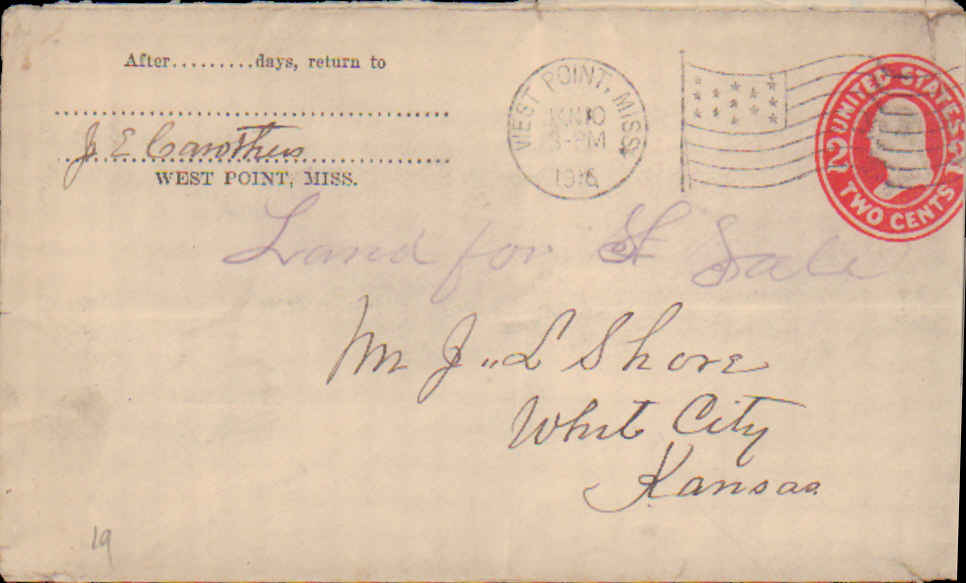 After.........days, return to
J. E Carothers
WEST POINT, MISS.
WEST POINT, MISS.
JAN 10
3-PM
1916
UNITED STATES
2 2
TWO CENTS
Land for Sale
Mr J. L Shore
Whit City
Kansas
19